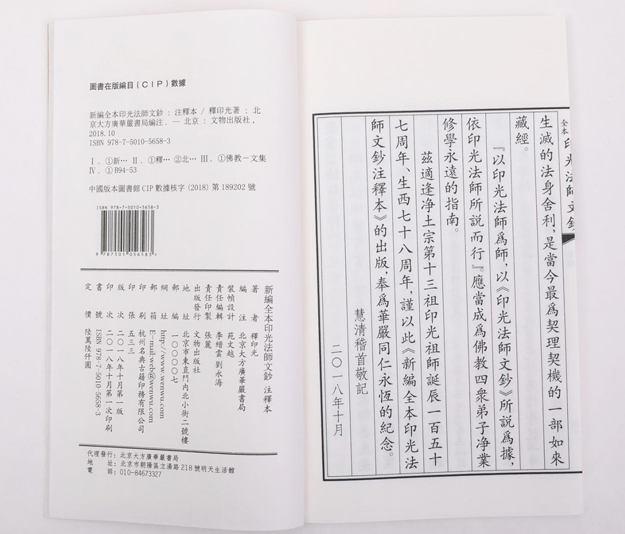 圖書在版編目(CIP)數據
新編全本印光法師文鈔：注釋本 / 釋印光著；北
京大方廣華嚴書局編注. — 北京：文物出版社,
2018.10
ISBN 978-7-5010-5658-3
Ⅰ. ①新… Ⅱ. ①釋… ②北… Ⅲ. ①佛教－文集
Ⅳ. ①B94-53
中國版本圖書館CIP數據核字(2018)第189202號
ISBN 978-7-5010-5658-3
9 787501 056583
新編全本印光法師文鈔 注釋本
著 者 釋印光
編 注 北京大方廣華嚴書局
裝幀設計 苑文越
責任編輯 李縉雲 劉永海
責任印製 張麗
出版發行 文物出版社
地 址 北京市東直門内北小街二號樓
郵 編 一〇〇〇〇七
網 址 http://www.wenwu.com
郵 箱 E-mail:web@wenwu.com
印 刷 杭州名典古籍印務有限公司
印 張 五三三
版 次 二〇一八年十月第一版
印 次 二〇一八年十月第一次印刷
書 號 ISBN 978-7-5010-5658-3
定 價 陸萬陸仟圓
代理發行：北京大方廣華嚴書局
地 址：北京市朝陽區立湯路218號明天生活館
電 話：010-84673327
全本印光法師文鈔
生滅的法身舍利，是當今最爲契理契機的一部如來
藏經。
『以印光法師爲師，以《印光法師文鈔》所説爲據，
依印光法師所説而行』應當成爲佛教四衆弟子净業
修學永遠的指南。
兹適逢净土宗第十三祖印光祖師誕辰一百五十
七周年、生西七十八周年，謹以此《新編全本印光法
師文鈔注釋本》的出版，奉爲華嚴同仁永恆的紀念。
慧清稽首敬記
二〇一八年十月